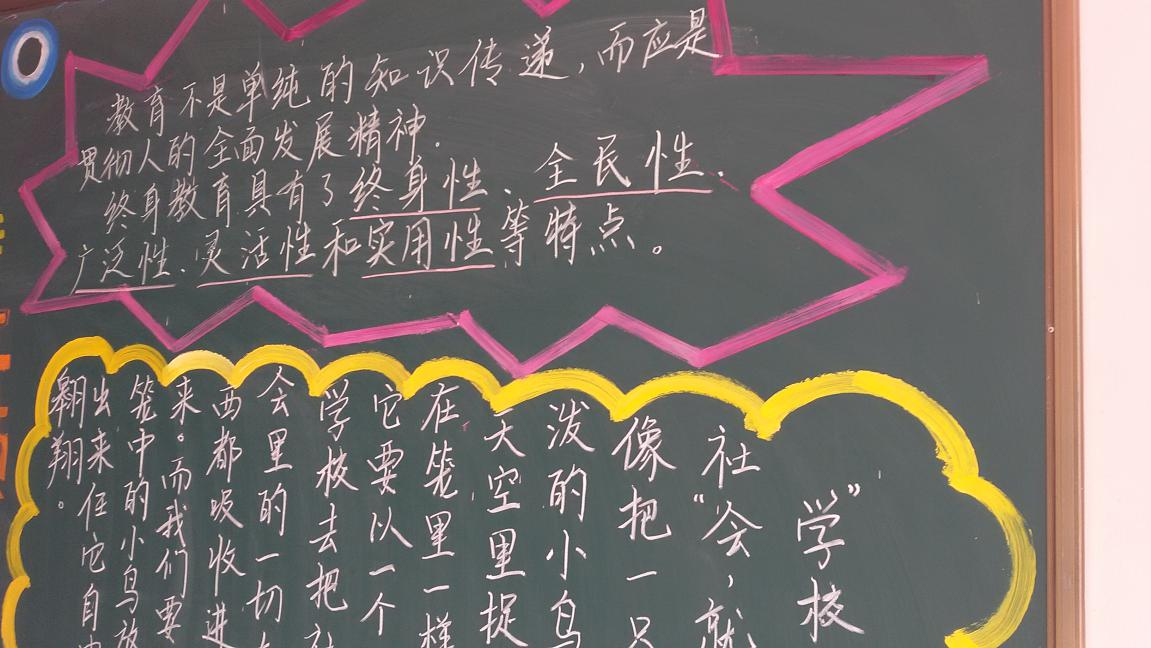 教育不是单纯的知识传递，而应是
贯彻人的全面发展精神.
终身教育具有了终身性、全民性、
广泛性、灵活性和实用性等特点。
”学校
社“会，就
像把一只
泼的小鸟
天空里捉
在笼里一样
它要以一个
学校去把社
会里的一切
西都吸收进
来。而我们要
笼中的小鸟放
出来任它自由
翱翔。